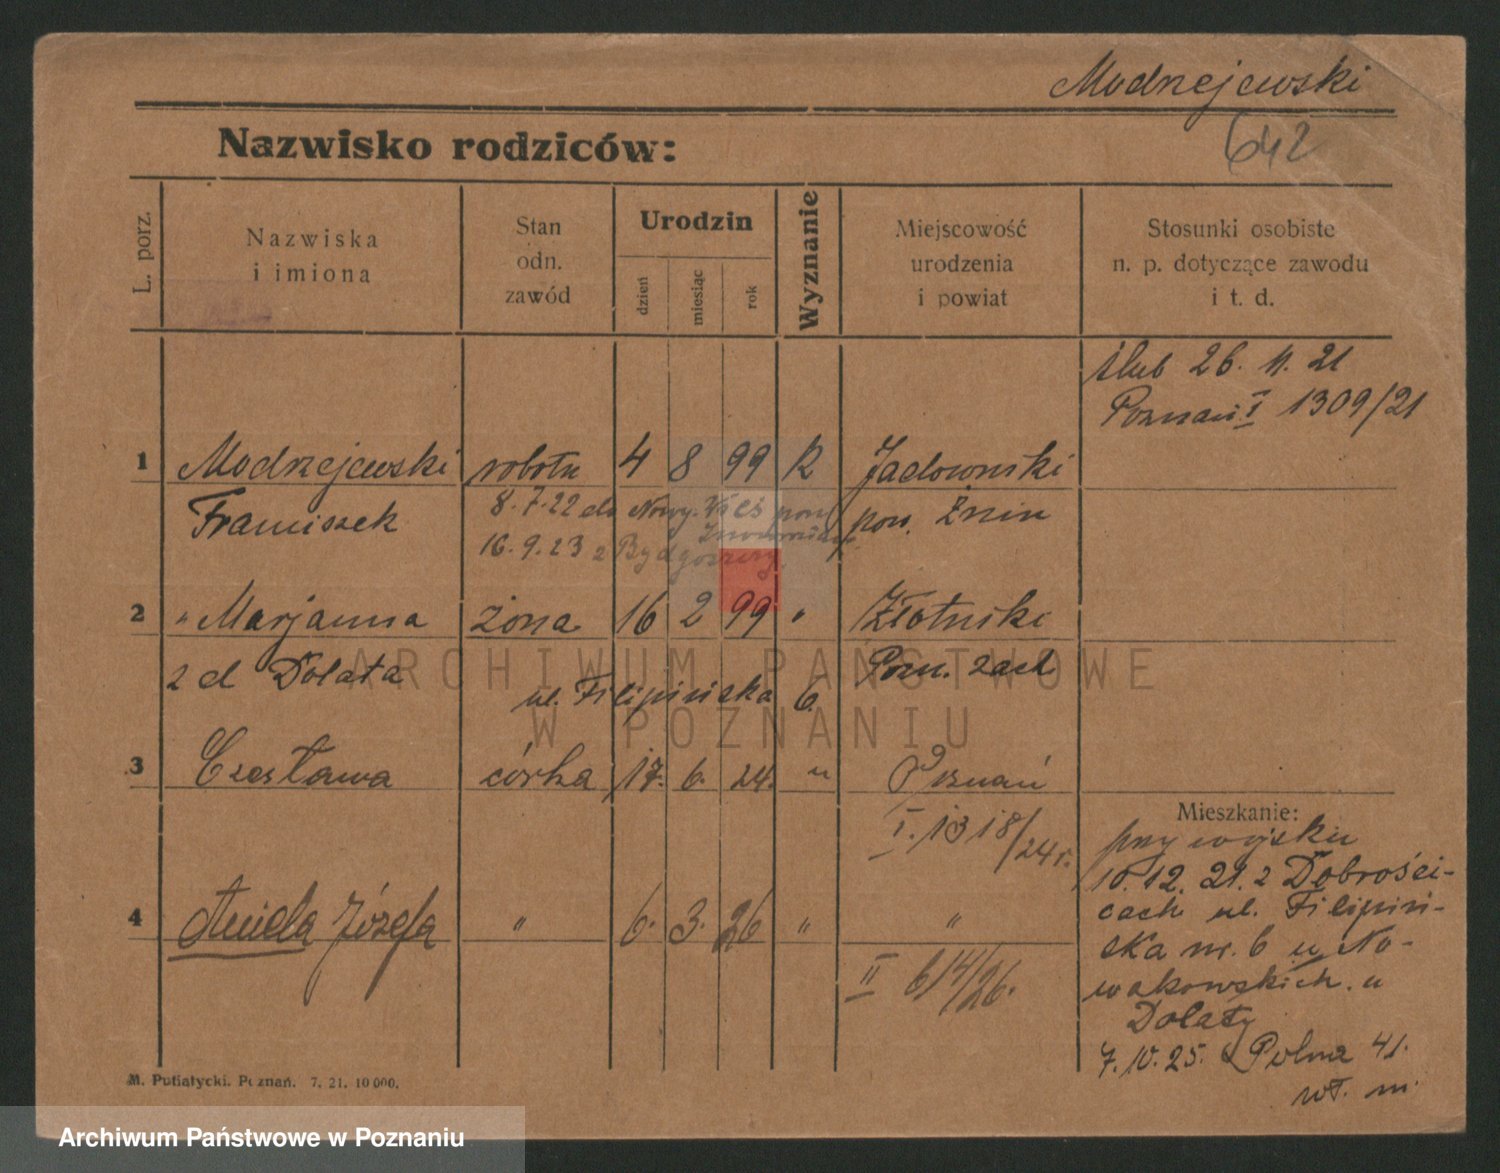 Modrzejewski
642
Nazwisko rodziców:
L. porz.
Nazwiska
i imiona
Stan
odn.
zawód
Urodzin
dzień
miesiąc
rok
Wyznanie
Miejscowość
urodzenia
i powiat
Stosunki osobiste
n. p. dotyczące zawodu
i t. d.
ślub 26. 11. 21
Poznań I 1309/21
1 Modrzejewski robotn 4 8 99 k Jadowniki
Franciszek 8.7.22 do Nowy Wieś pow. pow. Żnin
16.9.23 z Bydgoszczy
2 " Marjanna żona 16 2 99 " Złotniki
z d Dolata Pozn. zach
ul. Filipińska 6.
3 Czesława córka 17. 6. 24. " Poznań
I. 1318/24r.
4 Aniela Józefa " 6. 3. 26 " "
II 614/26.
Mieszkanie:
przy wojsku
10.12.21. z Dobrości-
cach ul. Filipiń-
ska nr. 6 u No-
wakowskich. u
Dolaty
7.10.25. Polna 41.
wł. m.
M. Putiatycki. Poznań. 7. 21. 10 000.
ARCHIWUM PAŃSTWOWE
W POZNANIU
Archiwum Państwowe w Poznaniu